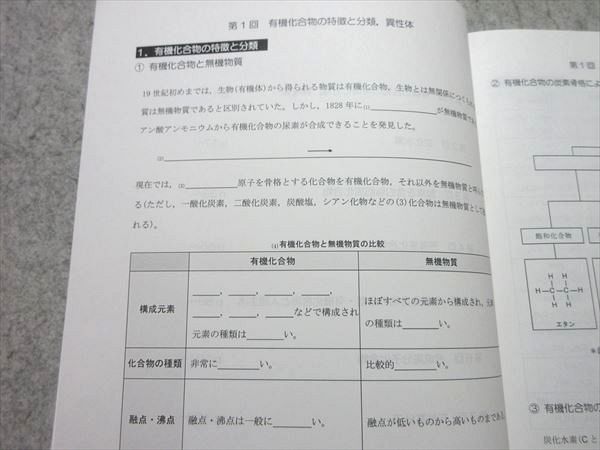 第1回 有機化合物の特徴と分類，異性体
1．有機化合物の特徴と分類
① 有機化合物と無機物質
19世紀初めまでは，生物(有機体)から得られる物質は有機化合物，生物とは無関係につくられ
質は無機物質であると区別されていた。しかし，1828年に(1)＿＿＿＿＿＿が無機物質であ
アン酸アンモニウムから有機化合物の尿素が合成できることを発見した。
(2)＿＿＿＿＿＿→＿＿＿＿＿＿
現在では，(3)＿＿＿＿＿＿原子を骨格とする化合物を有機化合物，それ以外を無機物質と
る(ただし，一酸化炭素，二酸化炭素，炭酸塩，シアン化物などの(3)化合物は無機物質として
れる)。
(4)有機化合物と無機物質の比較
有機化合物
無機物質
構成元素
＿＿＿，＿＿＿，＿＿＿，＿＿＿，
＿＿＿，＿＿＿，＿＿＿などで構成され
元素の種類は＿＿＿＿い。
ほぼすべての元素から構成され，元
の種類は＿＿＿＿い。
化合物の種類
非常に＿＿＿＿い。
比較的＿＿＿＿い。
融点・沸点
融点・沸点は一般に＿＿＿＿い。
融点が低いものから高いものまである
第1回
② 有機化合物の炭素骨格によ
飽和化合物
H H
H－C－C－H
H H
エタン
③ 有機化合物の
炭化水素(Cと